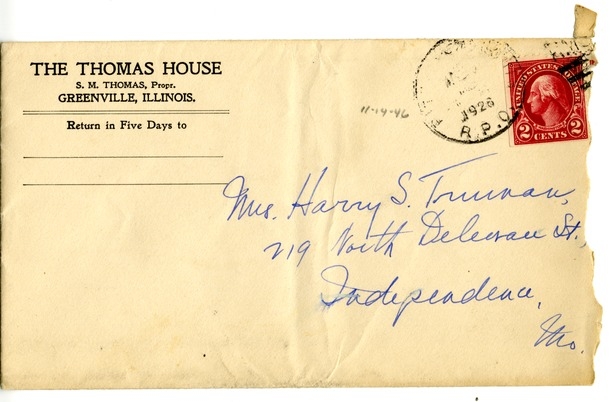 THE THOMAS HOUSE
S. M. THOMAS, Propr.
GREENVILLE, ILLINOIS.
Return in Five Days to
11-14-46
1926
R.P.O.
UNITED STATES POSTAGE
2 CENTS 2
Mrs. Harry S. Truman,
219 North Delevan St.,
Independence,
Mo.